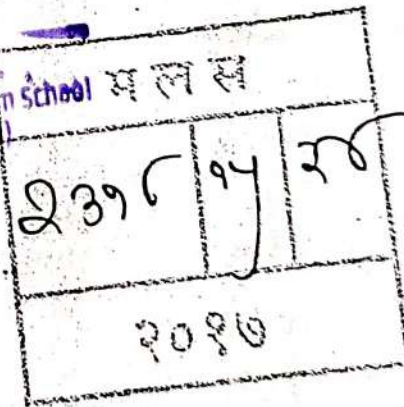 n School मलस
२३१८ १५
२०१७